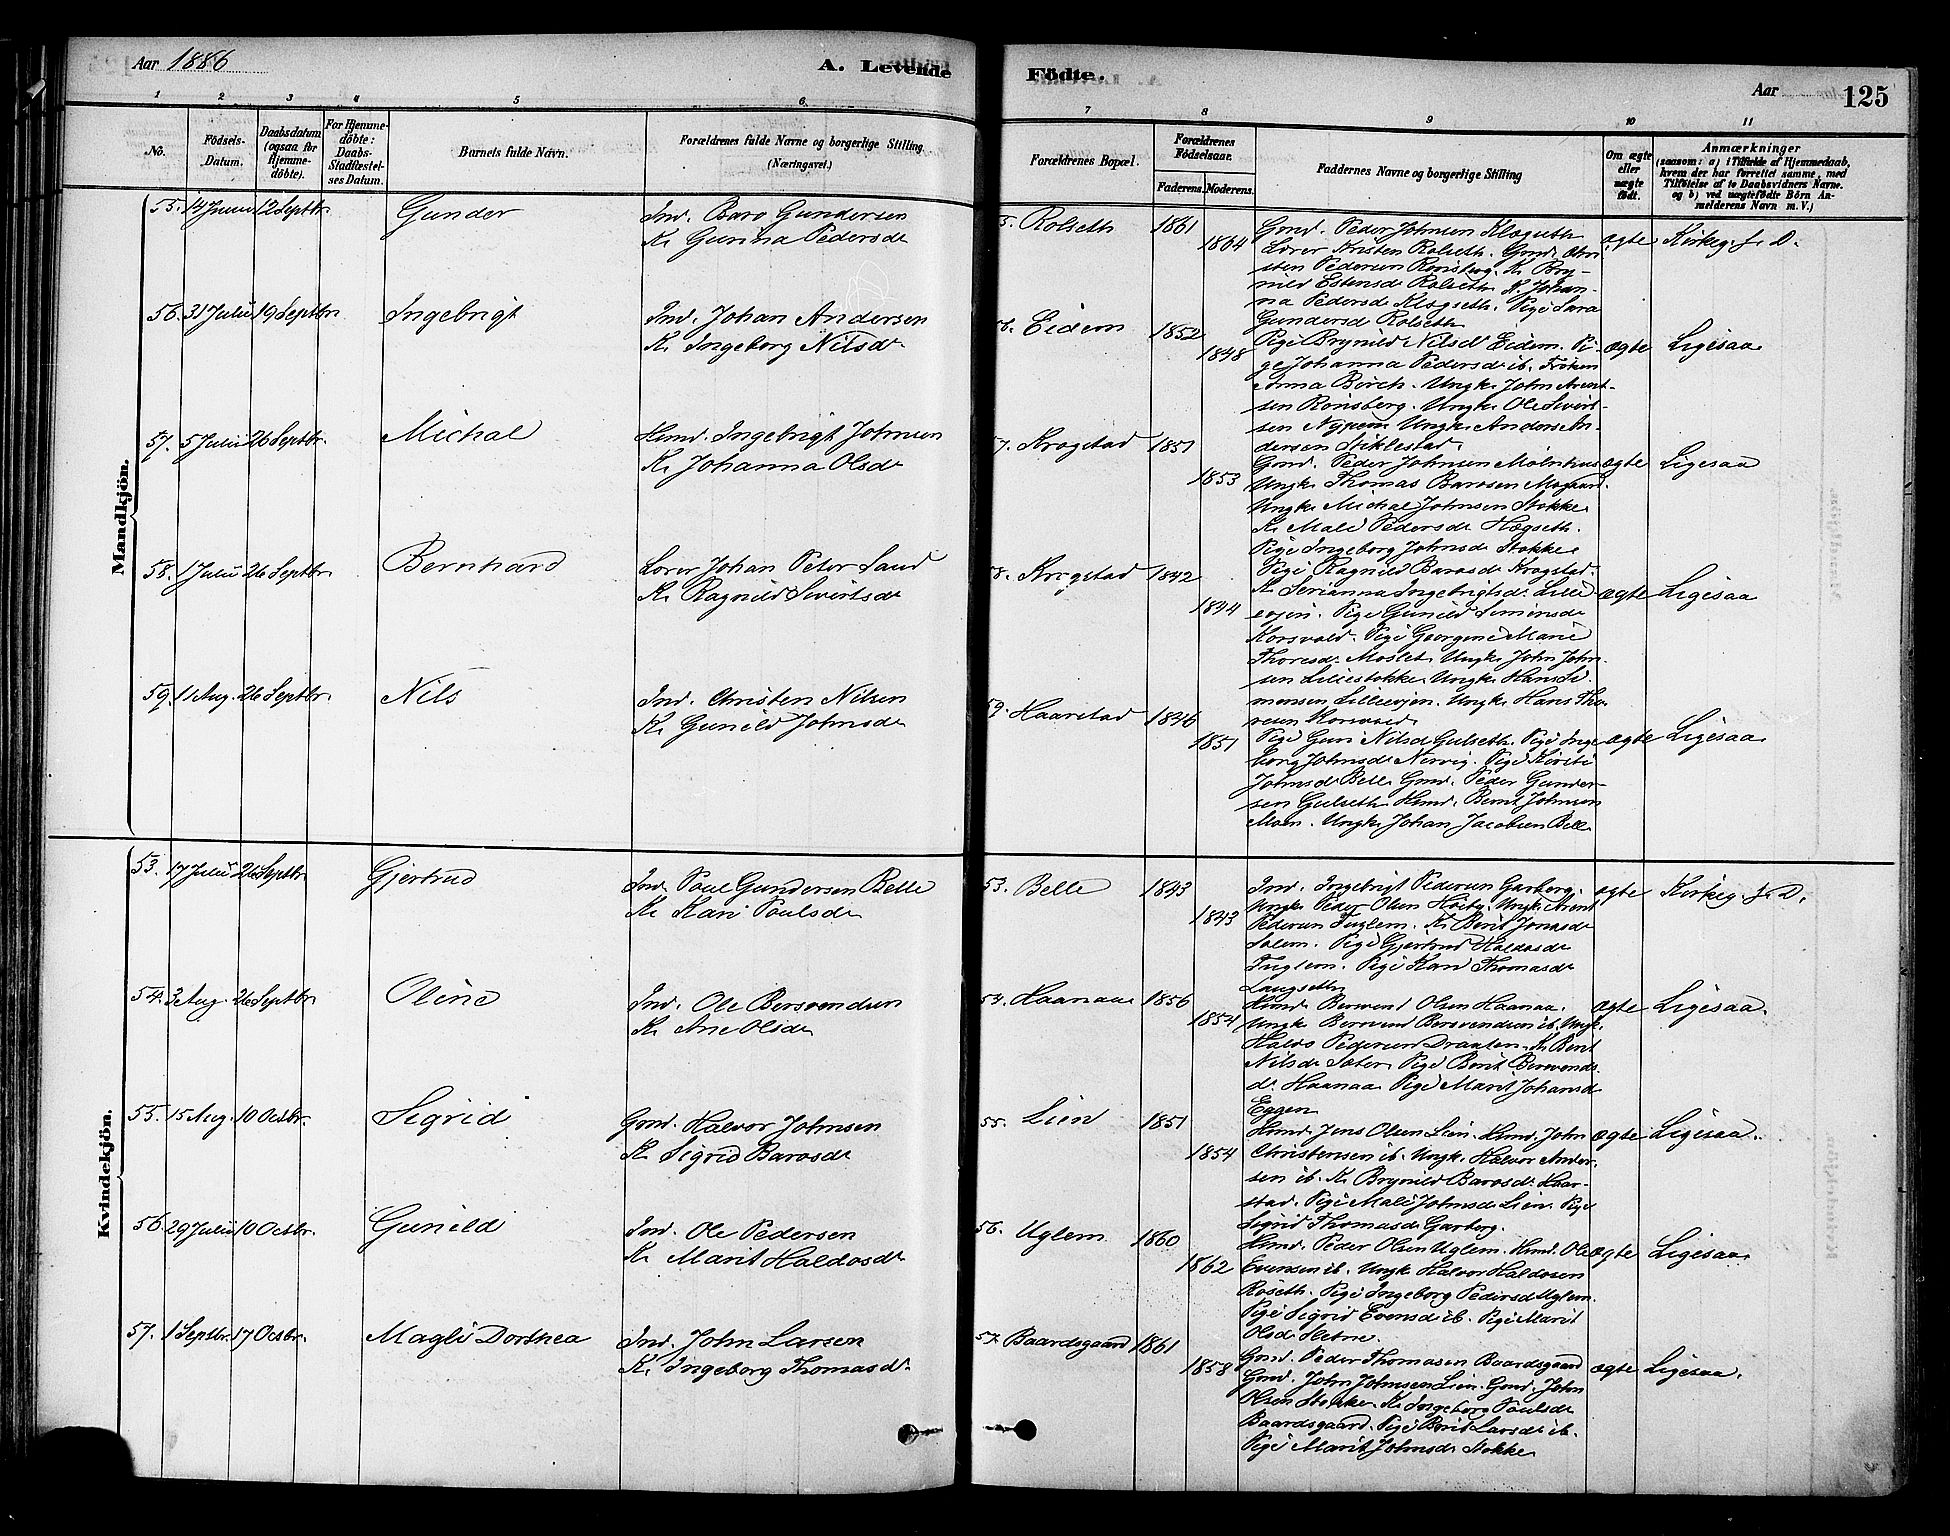 Aar 1886
A. Levende
Födte.
Aar
125
1
2
3
4
5
6
7
8
9
10
11
No.
Födsels-
Datum.
Daabsdatum
(ogsaa for
Hjemme-
döbte).
For Hjemme-
döbte:
Daabs-
Stadfæstel-
ses Datum.
Barnets fulde Navn.
Forældrenes fulde Navne og borgerlige Stilling
(Næringsvei.)
Forældrenes Bopæl.
Forældrenes
Födselsaar.
Faderens. Moderens.
Faddernes Navne og borgerlige Stilling
Om ægte
eller
uægte
födt.
Anmærkninger
(saasom: a) i Tilfælde af Hjemmedaab,
hvem der har forrettet samme, med
Tilföielse af to Daabsvidners Navne.
og b) ved uægtefödte Börn An-
melderens Navn m. V.)
Mandkjön.
55. 14 Juni 12 Septbr. Gunder
Ind. Baro Gundersen
K. Gunna Pedersd.
55. Rolseth 1861
1864
Gmd. Peder Johnsen Klogseth
Lærer Kristen Rolseth. Gmd. Chri-
sten Pedersen Rönsberg. K. Bry-
nild Estensd. Rolseth K. Johan-
na Pedersd. Klogseth. Pige Sara
Gundersd. Rolseth
ægte Kirkeg. f. D.
56. 31 Julii 19 Septbr. Ingebrigt
Ind. Johan Andersen
K. Ingeborg Nilsd.
56. Eidem 1852
1848
Pige Brynild Nilsd. Eidem. Pi-
ge Johanna Pedersd. ib. Fröken
Anna Birch. Ungk. John Arent-
sen Rönsberg. Ungk. Ole Sivert-
sen Nypen Ungk. Anders An-
dersen Stiklestad.
ægte Ligesaa
57. 5 Julii 26 Septbr. Michal
Hmd. Ingebrigt Johnsen
K. Johanna Olsd.
57. Krogstad 1851
1853
Gmd. Peder Johnsen Molnhus
Ungk. Thomas Barosen Mogaard.
Ungk. Michal Johnsen Stokke
K. Mali Pedersd. Hægseth.
Pige Ingeborg Johnsd. Stokke
Pige Ragnild Barosd. Krogstad.
ægte Ligesaa
58. 1 Julii 26 Septbr. Bernhard
Lærer Johan Peter Sand
K. Ragnild Sivertsd.
58. Krogstad 1842
1844
K. Serianna Ingebrigtsd. Lille
evjen. Pige Gunild Simensd.
Korsvold. Pige Georgine Marie
Thoresd. Moslet. Ungk. John John-
sen Lillestokke. Ungk. Hans Si-
monsen Lilleevjen. Ungk. Hans Tho-
resen Korsvold
ægte Ligesaa
59. 11 Aug. 26 Septbr. Nils
Ind. Christen Nilsen
K. Gunild Johnsd.
59. Haarstad 1846
1851
Pige Guri Nilsd. Gulseth. Pige Inge
borg Johnsd. Nervig. Pige Kirsti
Johnsd. Belle Gmd. Peder Gunder-
sen Gulseth Hmd. Bernt Johnsen
Moen. Ungk. Johan Jacobsen Belle
ægte Ligesaa
Kvindekjön.
53. 17 Julii 26 Septbr. Gjertrud
Ind. Poul Gundersen Belle
K. Kari Poulsd.
53. Belle 1843
1843
Ind. Ingebrigt Pedersen Garberg.
Ungk. Peder Olsen Höiby. Ungk. Arent
Pedersen Fuglem. K. Berit Jonasd.
Solem. Pige Gjertrud Haldosd.
Fuglem. Pige Kari Thomasd.
Langseth
ægte Kirkeg. f. D.
54. 3 Aug. 26 Septbr. Oline
Ind. Ole Bersvendsen
K. Ane Olsd.
54. Haanaa 1856
1854
Hmd. Bersvend Olsen Haanaa.
Ungk. Bersvend Bersvendsen ib. Ungk.
Halvo Pedersen Draaten. K. Berit
Nilsd. Sæter. Pige Berit Bersvends-
d. Haanaa Pige Marit Johansd.
Eggen
ægte Ligesaa.
55. 15 Aug. 10 Octbr. Sigrid
Gmd. Halvor Johnsen
K. Sigrid Barosd.
55. Lien 1851
1854
Hmd. Jens Olsen Lien. Hmd. John
Christensen ib. Ungk. Halvor Ander-
sen ib. K. Brynild Barosd. Haar-
stad. Pige Mali Johnsd. Lien. Pige
Sigrid Thomasd. Garberg.
ægte Ligesaa.
56. 29 Julii 10 Octbr. Gunild
Ind. Ole Pedersen
K. Marit Haldosd.
56. Uglem 1860
1862
Hmd. Peder Olsen Uglem. Hmd. Ole
Evensen ib. Ungk. Halvor Haldosen
Roseth. Pige Ingeborg Pedersd. Uglem.
Pige Sigrid Evensd. ib. Pige Marit
Olsd.
ægte Ligesaa.
57. 1 Septbr. 17 Octbr. Magli Dorthea
Ind. John Larsen
K. Ingeborg Thomasd.
57. Baardsgaard 1861
1858
Gmd. Peder Thomasen Baardsgaard
Gmd. John Johnsen Lien. Gmd. John
Olsen Stokke. K. Ingeborg Poulsd.
Baardsgaard. Pige Berit Larsd. ib.
Pige Marit Johnsd. Stokke
ægte Ligesaa.